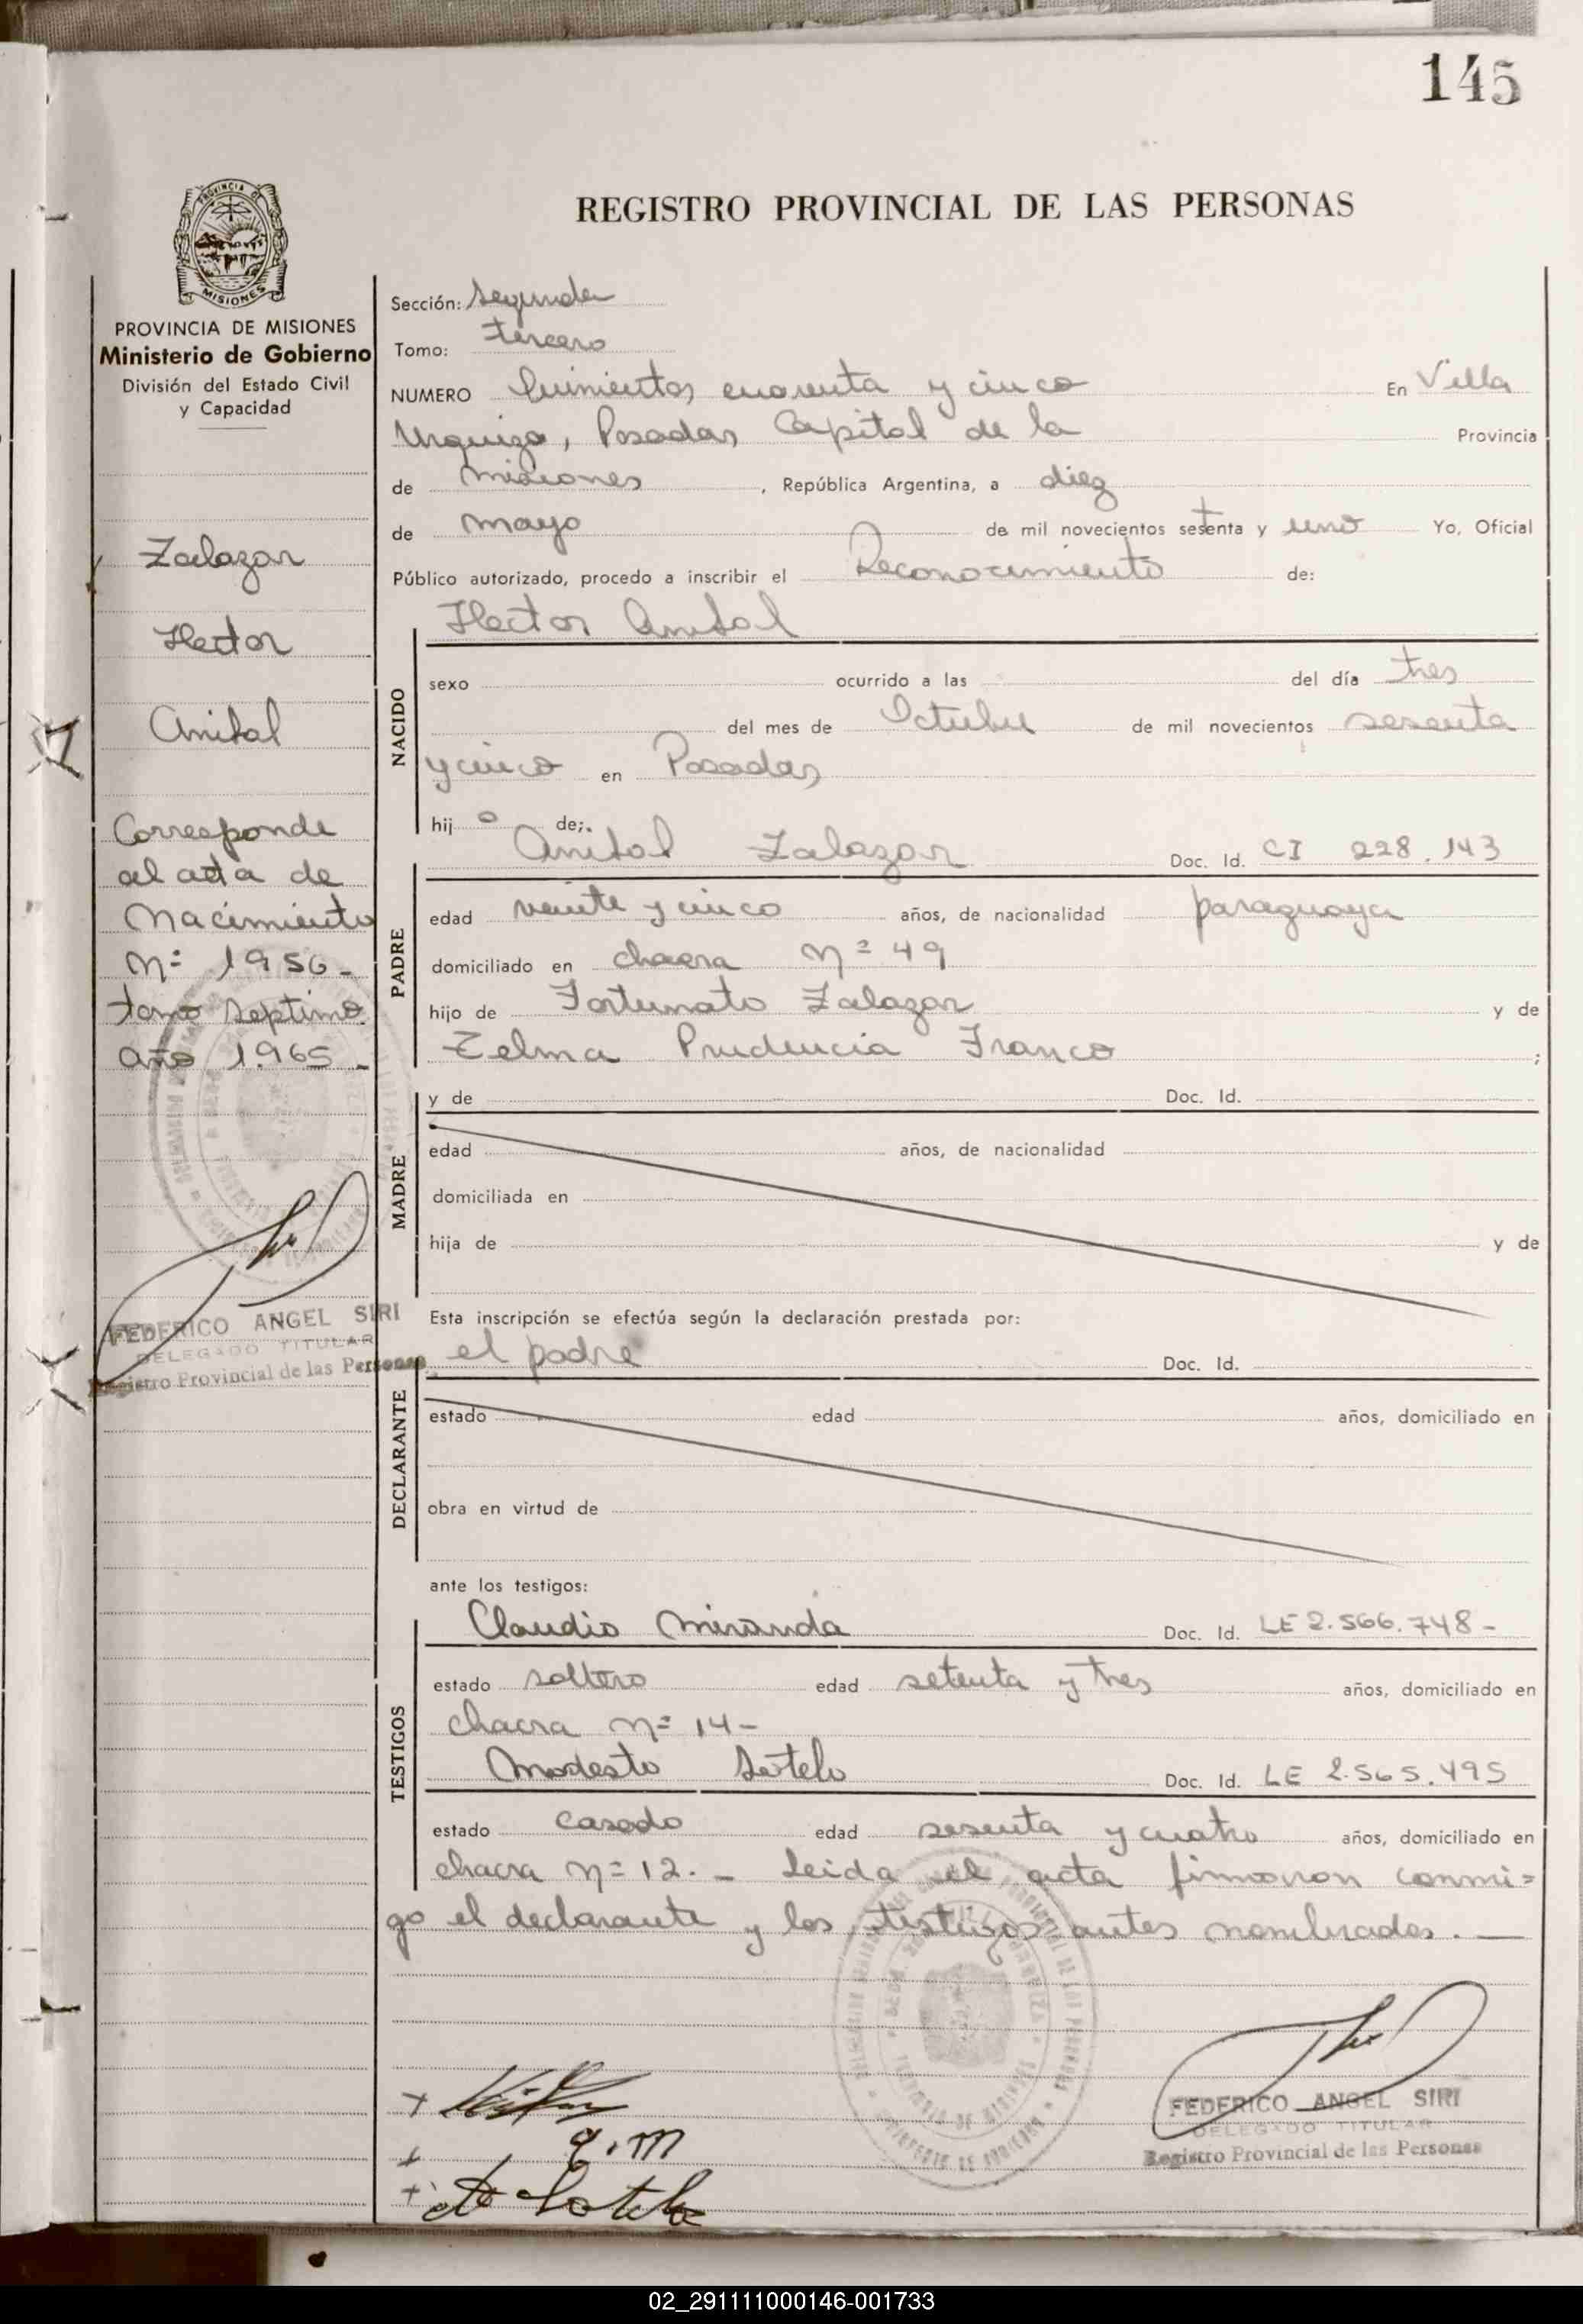 145
REGISTRO PROVINCIAL DE LAS PERSONAS
PROVINCIA DE MISIONES
MISIONES
PROVINCIA DE MISIONES
Ministerio de Gobierno
División del Estado Civil
y Capacidad
Zalazar
Hector
Anibal
Corresponde
al acta de
Nacimiento
Nº 1956-
tomo septimo
año 1965-
FEDERICO ANGEL SIRI
DELEGADO TITULAR
Registro Provincial de las Personas
Sección: segunda
Tomo: tercero
NUMERO Quinientos cuarenta y cinco En Villa
Urquiza, Posadas Capital de la Provincia
de misiones, República Argentina, a diez
de mayo de mil novecientos setenta y uno Yo, Oficial
Público autorizado, procedo a inscribir el Reconocimiento de:
Hector Anibal
NACIDO
sexo ocurrido a las del día tres
del mes de Octubre de mil novecientos sesenta
y cinco en Posadas
hijo de;
Anibal Zalazar Doc. Id. CI 228.143
PADRE
edad veinte y cinco años, de nacionalidad paraguaya
domiciliado en chacra Nº 49
hijo de Fortunato Zalazar y de
Zelma Prudencia Franco ;
y de Doc. Id.
MADRE
edad años, de nacionalidad
domiciliada en
hija de y de
Esta inscripción se efectúa según la declaración prestada por:
el padre Doc. Id.
DECLARANTE
estado edad años, domiciliado en
obra en virtud de
ante los testigos:
Claudio Miranda Doc. Id. LE 2.566.748-
TESTIGOS
estado soltero edad setenta y tres años, domiciliado en
chacra Nº 14-
Modesto Sotelo Doc. Id. LE 2.565.495
estado casado edad sesenta y cuatro años, domiciliado en
chacra Nº 12.- Leida el acta firmaron conmi=
go el declarante y los testigos antes nombrados.—
FEDERICO ANGEL SIRI
DELEGADO TITULAR
Registro Provincial de las Personas
02_291111000146-001733